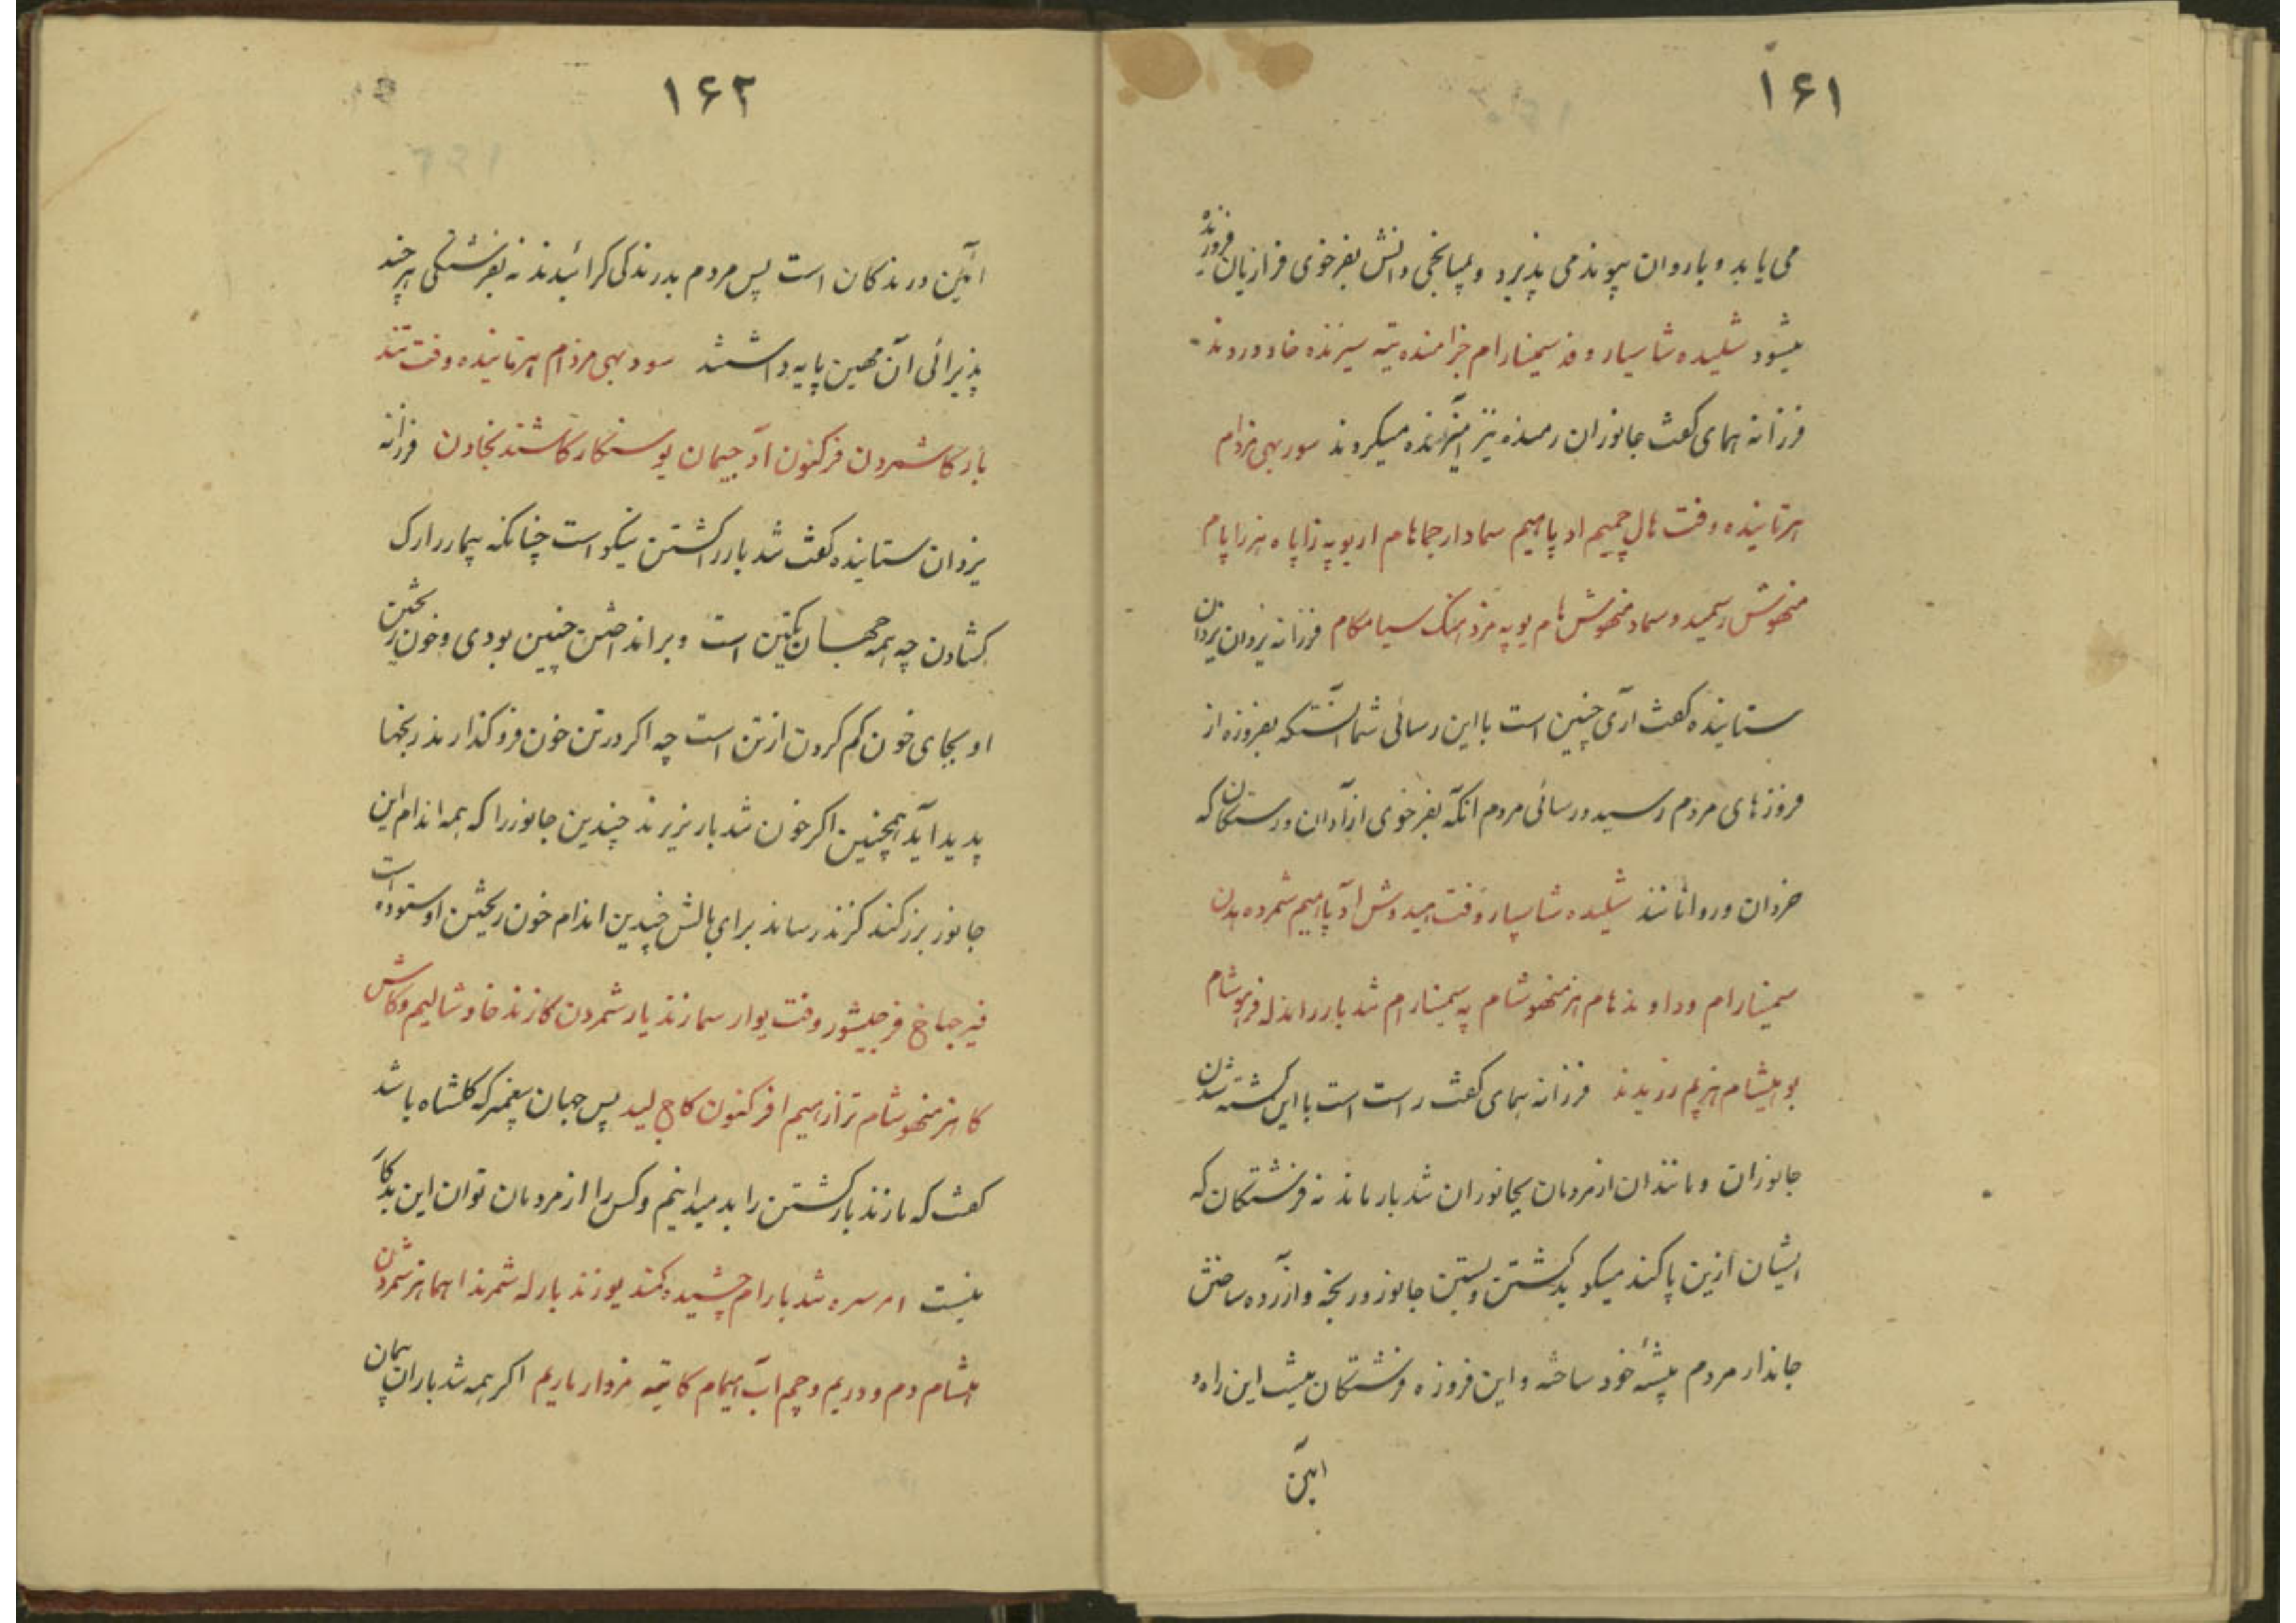 ۱۶۱
می یابد و باروان پیوند می پذیرد و بمیانجی دانش بفرخوی فرازیان فروزنده
میشود شلیده شاسپار وفد سیمنارام خرامنده تیه سیرنده خاد وروند
فرزانه همای کفت جانوران رمنده نیز آمیزنده میکروند سود بهی مزدام
هرتاینده وفت هال چمیم اد پامیم سماد ارجماهام اریو په زاپاه هنرزاپام
منهوش رسمید و سماد منهوش هام یو په مزد
فرزانه یزدان یزدان
ستاینده کفت آری چنین است با این رسائی شما آنستکه بفروزه از
فروزهای مردم رسید و رسائی مردم آنکه بفرخوی ازادان ورستکان که
خردان وروانانند شلیده شاسپار وفت
آد پامیم شمرده بدن
سیمنارام وداوند هام هز منهوشام په سیمنارام شد بار را
فرهوشام
بو
هزیم رزیدند فرزانه همای کفت راست است با این کشته شدن
جانوران و مانند ان از مردمان بجانوران تندبار ماند نه فرشتکان که
ایشان ازین پاکند میکوید کشتن و بستن جانور و ریخته و آزرده ساختن
جاندار مردم پیشهٔ خود ساخته و این فروزه فرشتکان نیست این راه و
آیین
۱۶۲
آیین درندکان است پس مردم بدرندکی کرائیدند نه بفرشتکی هرچند
پذیرائی آن مهین پایه داشتند سود بهی مزدام هرتاینده وفت تند
بار کاشمردن فرکنون آد جیمان یو سنکار کاشند
فرزانه
یزدان ستاینده کفت تندبار را کشتن نیکو است چنانکه بیمار را رک
کشادن چه همه جهان یکتن است و برانداختن چنین بودی و خون ریختن
او بجای خون کم کردن از تن است چه اکر در تن خون فزو کذارند رنجها
پدید آید همچنین اکر خون تندبار نریزند چندین جانور را که همه اندام این
جانور بزرکند کزند رساند برای بالش چندین اندام خون ریختن او ستوده است
فیرجباخ
وفت یوار سمازند یار شمردن کازند خاد شالیم وکاش
کا هز منهوشام تراز
فرکنون کاج لید پس جهان پیغمبر که کلشاه باشد
کفت که ما زندبار کشتن را بد میدانیم و کس را از مردمان توان این بدکار
نیست امر سره شد بارام
یو زند بارله شمرند اهماهنز شمردن
دم و دریم و چم آب
کا تیه مزدار باریم اکر همه تندباران پیمان